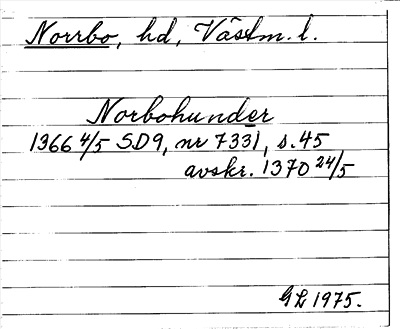 Norrbo, hd, Västm. l.
Norbohunder
1366 4/5 SD9, nr 7331, s. 45
avskr. 1370 24/5
GL 1975.